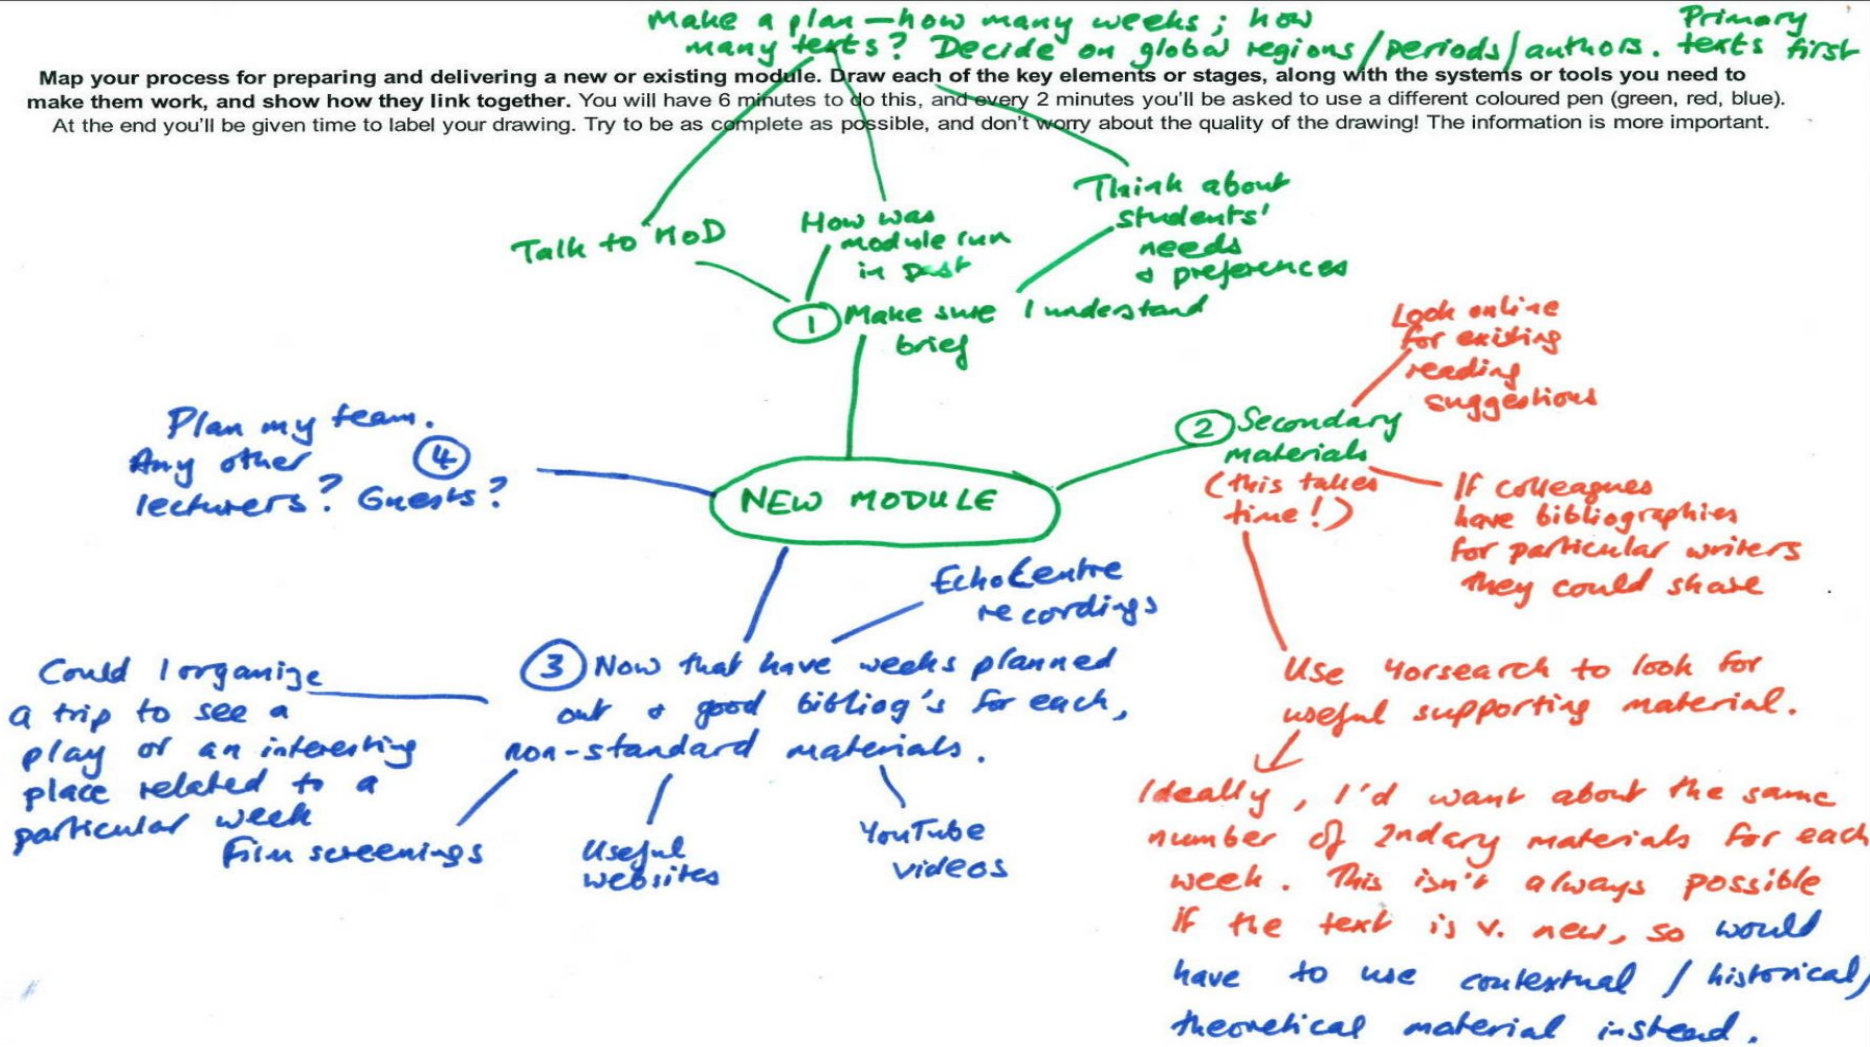 Make a plan – how many weeks; how
many texts? Decide on global regions/periods/authors.
Primary
texts first
Map your process for preparing and delivering a new or existing module. Draw each of the key elements or stages, along with the systems or tools you need to
make them work, and show how they link together. You will have 6 minutes to do this, and every 2 minutes you'll be asked to use a different coloured pen (green, red, blue).
At the end you'll be given time to label your drawing. Try to be as complete as possible, and don't worry about the quality of the drawing! The information is more important.
Talk to MoD
How was
module run
in past
Think about
students'
needs
& preferences
1 Make sure I understand
brief
2 Secondary
materials
(this takes
time!)
Look online
for existing
reading
suggestions
If colleagues
have bibliographies
for particular writers
they could share
Use Yorsearch to look for
useful supporting material.
Ideally, I'd want about the same
number of 2ndary materials for each
week. This isn't always possible
if the text is v. new, so would
have to use contextual / historical /
theoretical material instead.
NEW MODULE
Plan my team.
Any other 4
lecturers? Guests?
Echo Centre
recordings
3 Now that have weeks planned
out & good bibliog's for each,
non-standard materials.
Could I organize
a trip to see a
play or an interesting
place related to a
particular week
Film screenings
Useful
websites
YouTube
videos